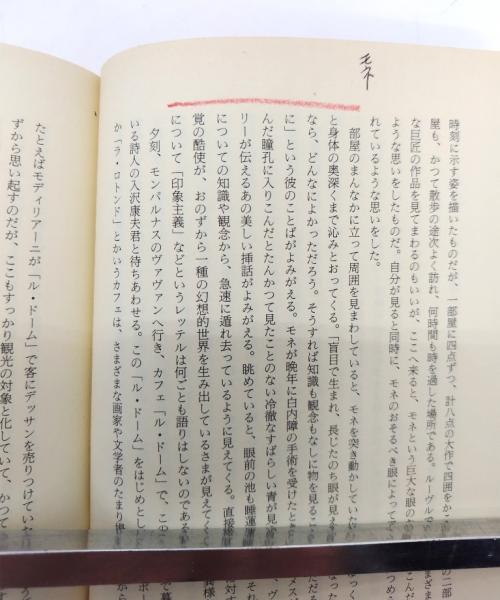 モネ
時刻に示す姿を描いたものだが、一部屋に四点ずつ、計八点の大作で四囲をかこ
屋も、かつて散歩の途次よく訪れ、何時間も時を過した場所である。ルーヴルで
な巨匠の作品を見てまわるのもいいが、ここへ来ると、モネという巨大な眼の
ような思いをしたものだ。自分が見ると同時に、モネのおそるべき眼によって
れているような思いをした。
部屋のまんなかに立って周囲を見まわしていると、モネを突き動かしていた
と身体の奥深くまで沁みとおってくる。「盲目で生まれ、長じたのち眼が見え
なら、どんなによかっただろう。そうすれば知識も観念もなしに物を見ること
に」という彼のことばがよみがえる。モネが晩年に白内障の手術を受けたと
んだ瞳孔に入りこんだとたんかつて見たことのない冷徹なすばらしい青が見
リーが伝えるあの美しい挿話がよみがえる。眺めていると、眼前の池も睡蓮
についての知識や観念から、急速に遁れ去っているように見えてくる。直接
覚の酷使が、おのずから一種の幻想的世界を生み出しているさまが見えてく
について「印象主義」などというレッテルは何ごとも語りはしないのである
夕刻、モンパルナスのヴァヴァンへ行き、カフェ「ル・ドーム」で、この
いる詩人の入沢康夫君と待ちあわせる。この「ル・ドーム」をはじめとし
か「ラ・ロトンド」とかいうカフェは、さまざまな画家や文学者のたまり
たとえばモディリアーニが「ル・ドーム」で客にデッサンを売りつけていた
ずから思い起すのだが、ここもすっかり観光の対象と化していて、かつて